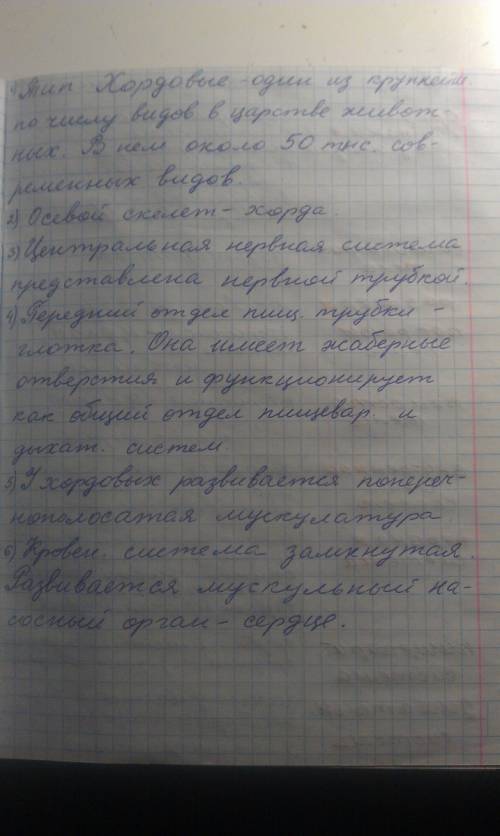 1) Тип Хордовые - один из крупнейш.
по числу видов в царстве живот-
ных. В нем около 50 тыс. сов-
ременных видов.
2) Осевой скелет - хорда.
3) Центральная нервная система
представлена нервной трубкой.
4) Передний отдел пищ. трубки -
глотка. Она имеет жаберные
отверстия и функционирует
как общий отдел пищевар. и
дыхат. систем.
5) У хордовых развивается попереч-
нополосатая мускулатура
6) Кровен. система замкнутая.
Развивается мускульный на-
сосный орган - сердце.